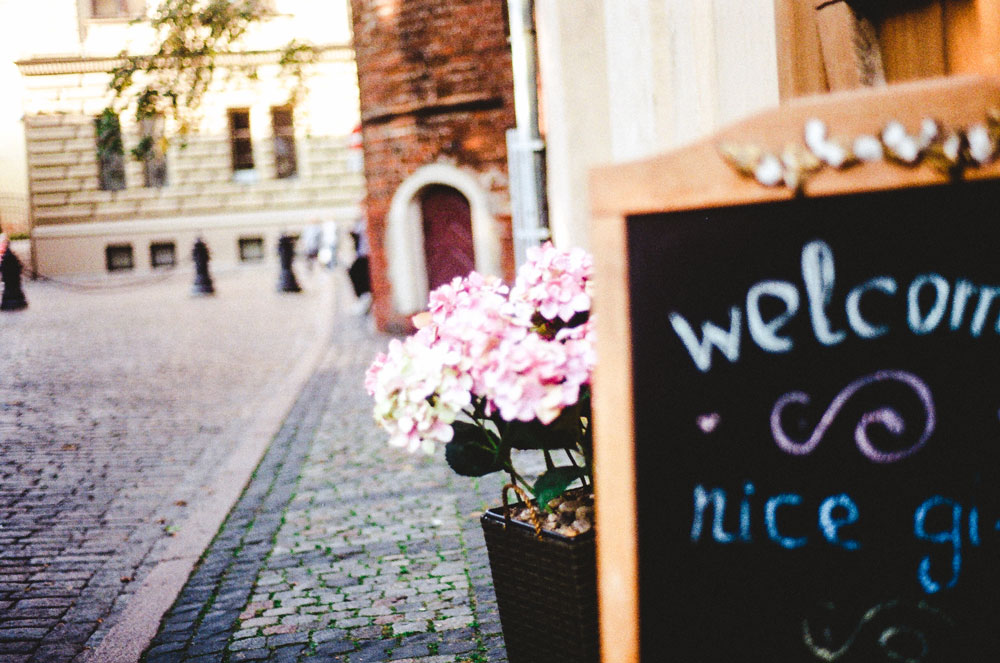 welcom
nice gi